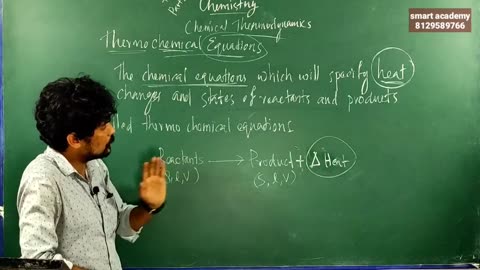 Chemistry
smart academy
8129589766
Part
Chemical Thermodynamics
Thermochemical Equations
The chemical equations which will specify heat
changes and states of reactants and products
led thermo chemical equations
Reactants → Product + Δ Heat
(S, l, V) (S, l, V)